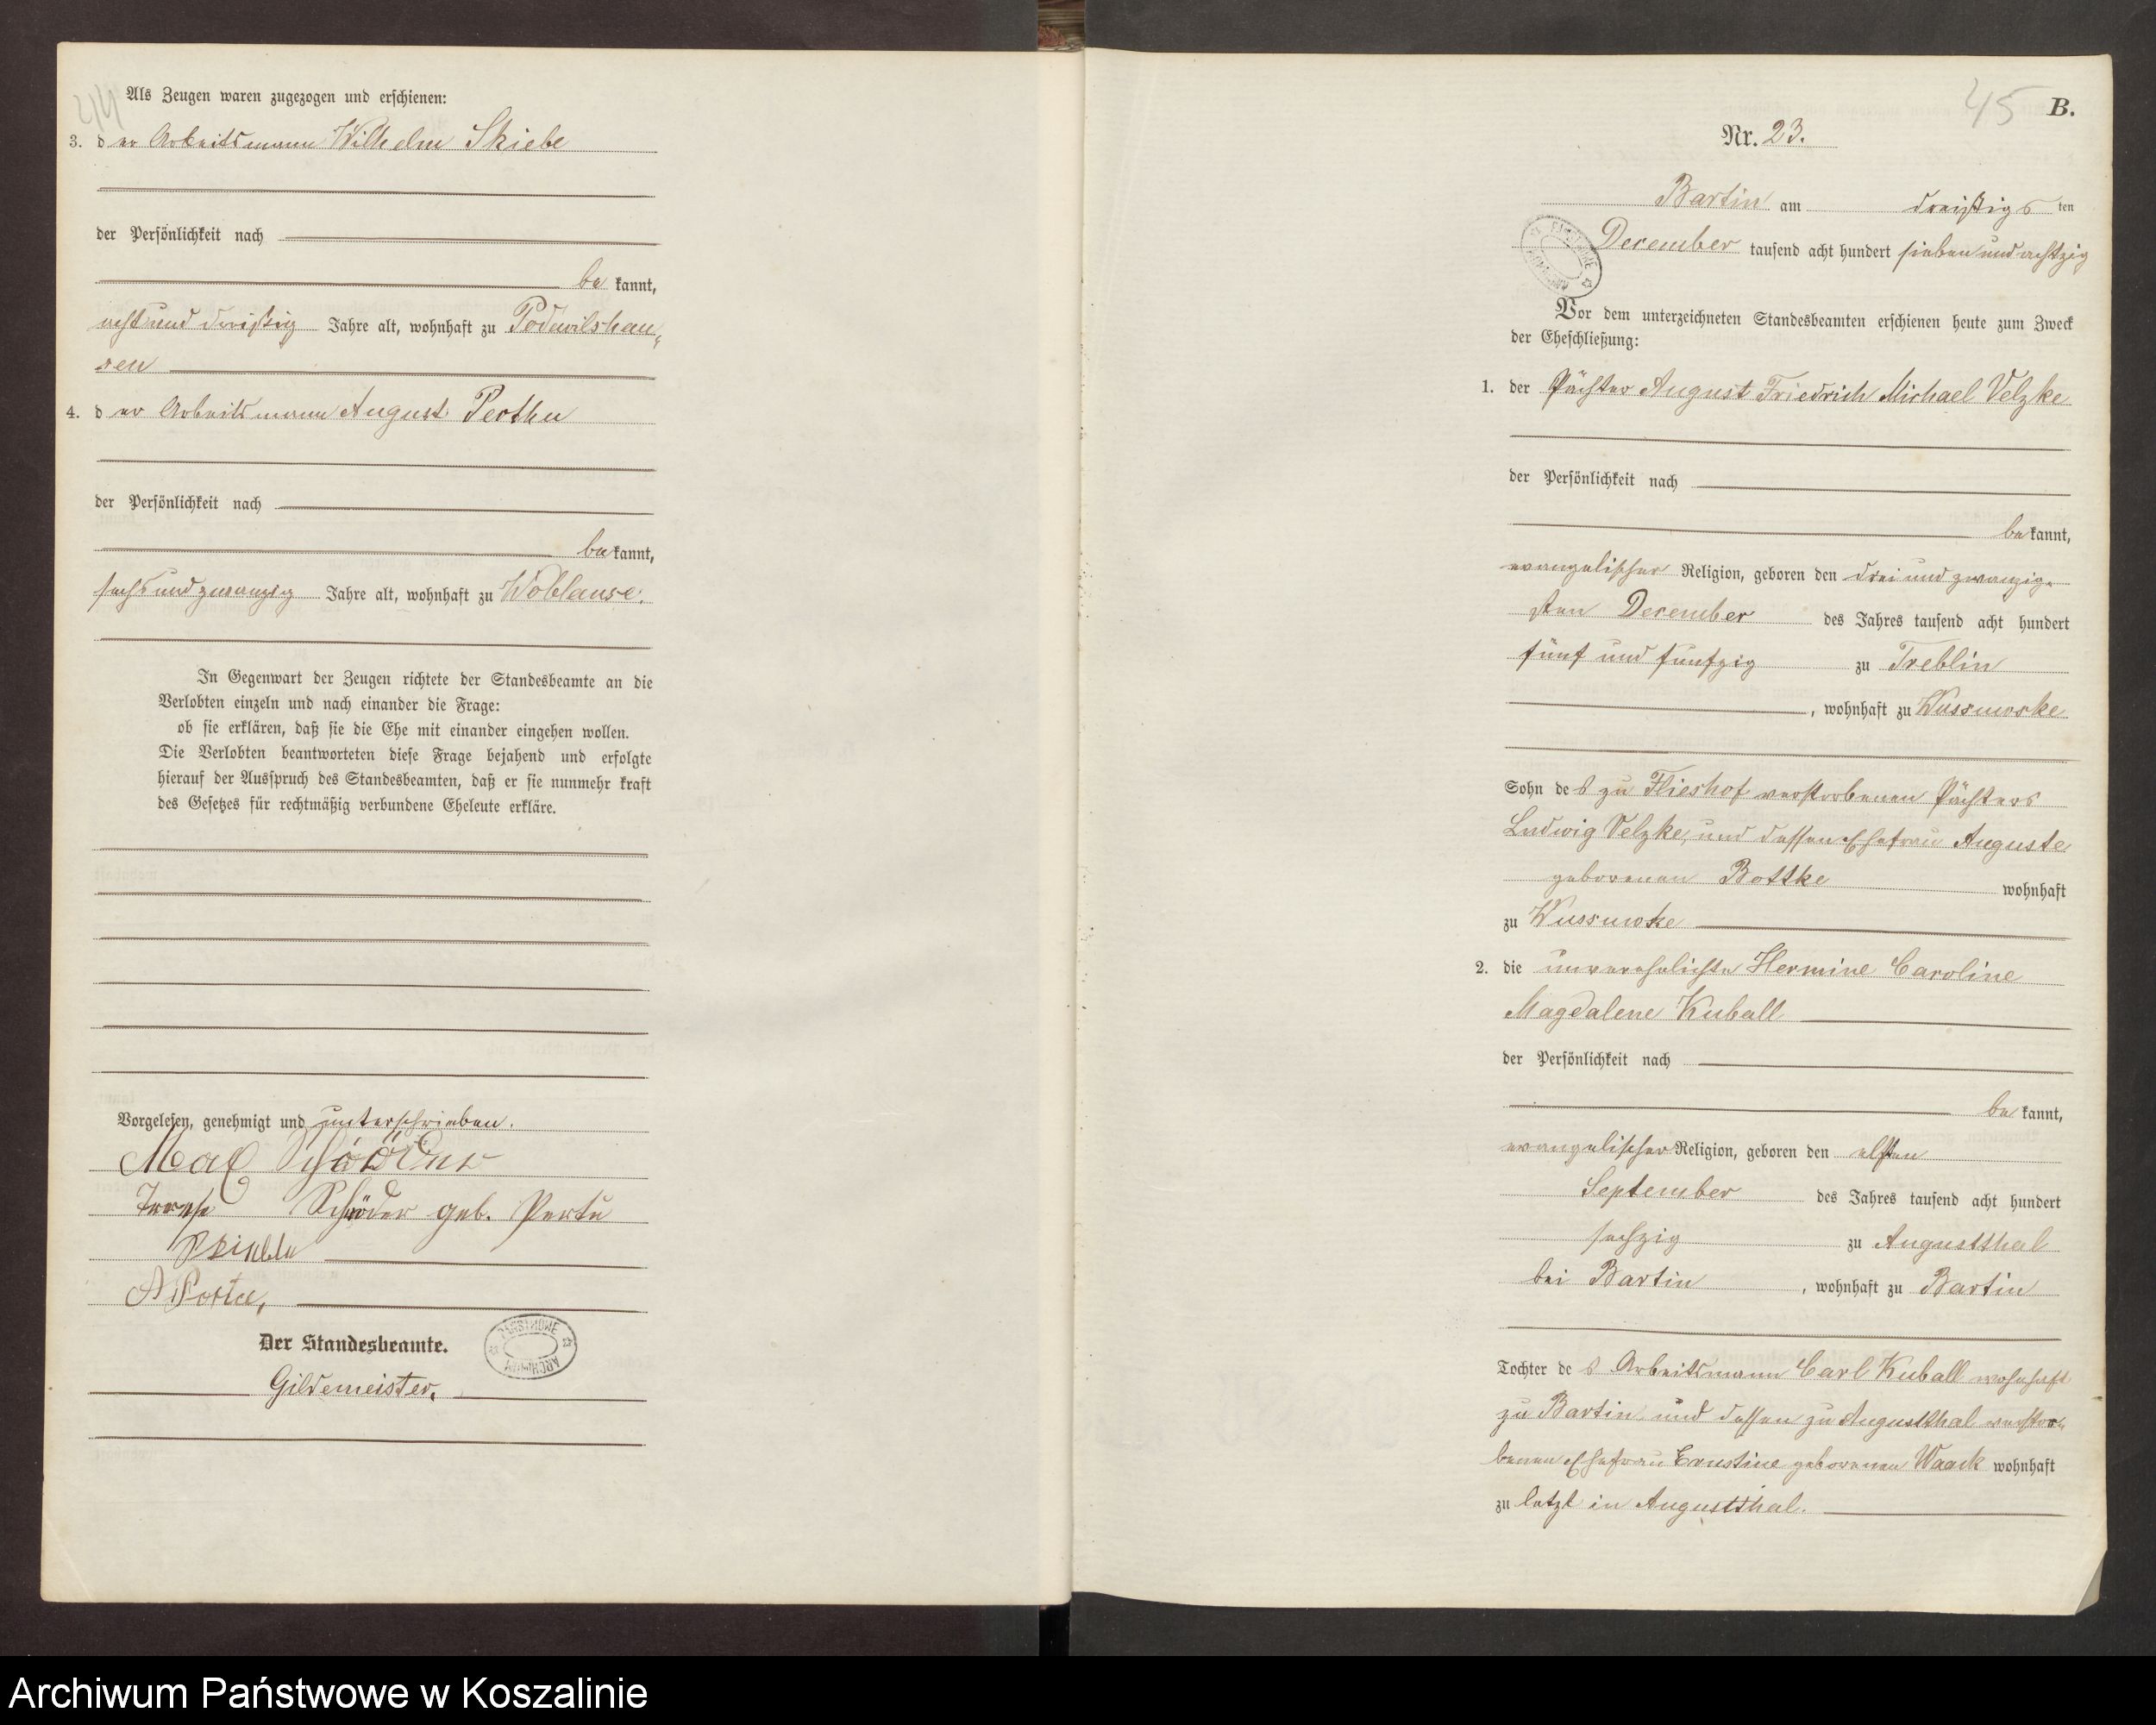 44
Als Zeugen waren zugezogen und erschienen:
3. der Arbeitsmann Wilhelm Skiebe
der Persönlichkeit nach
bekannt,
acht und dreißig Jahre alt, wohnhaft zu Podewilshau-
sen
4. der Arbeitsmann August Perthu
der Persönlichkeit nach
bekannt,
sechs und zwanzig Jahre alt, wohnhaft zu Woblanse.
In Gegenwart der Zeugen richtete der Standesbeamte an die
Verlobten einzeln und nach einander die Frage:
ob sie erklären, daß sie die Ehe mit einander eingehen wollen.
Die Verlobten beantworteten diese Frage bejahend und erfolgte
hierauf der Ausspruch des Standesbeamten, daß er sie nunmehr kraft
des Gesetzes für rechtmäßig verbundene Eheleute erkläre.
Vorgelesen, genehmigt und unterschrieben.
Schröder geb.
Der Standesbeamte.
ARCHIWUM PAŃSTWOWE
Gildemeister.
45 B.
Nr. 23.
Bartin am dreißigsten
December tausend acht hundert sieben und achtzig
Vor dem unterzeichneten Standesbeamten erschienen heute zum Zweck
der Eheschließung:
1. der Pächter August Friedrich Michael Velzke
der Persönlichkeit nach
bekannt,
evangelischer Religion, geboren den drei und zwanzig-
sten December des Jahres tausend acht hundert
fünf und fünfzig zu Treblin
, wohnhaft zu Wussowske
Sohn des zu Flieshof verstorbenen Pächters
Ludwig Velzke, und dessen Ehefrau Auguste
geborenen Bottke wohnhaft
zu
2. die unverehelichte Hermine Caroline
Magdalene Kuball
der Persönlichkeit nach
bekannt,
evangelischer Religion, geboren den elften
September des Jahres tausend acht hundert
sechzig zu Augustthal
bei Bartin, wohnhaft zu Bartin
Tochter des Arbeitsmann Carl Kuball wohnhaft
zu Bartin und dessen zu Augustthal verstor-
benen Ehefrau Ernstine geborenen Waack wohnhaft
zu letzt in Augustthal.
Archiwum Państwowe w Koszalinie